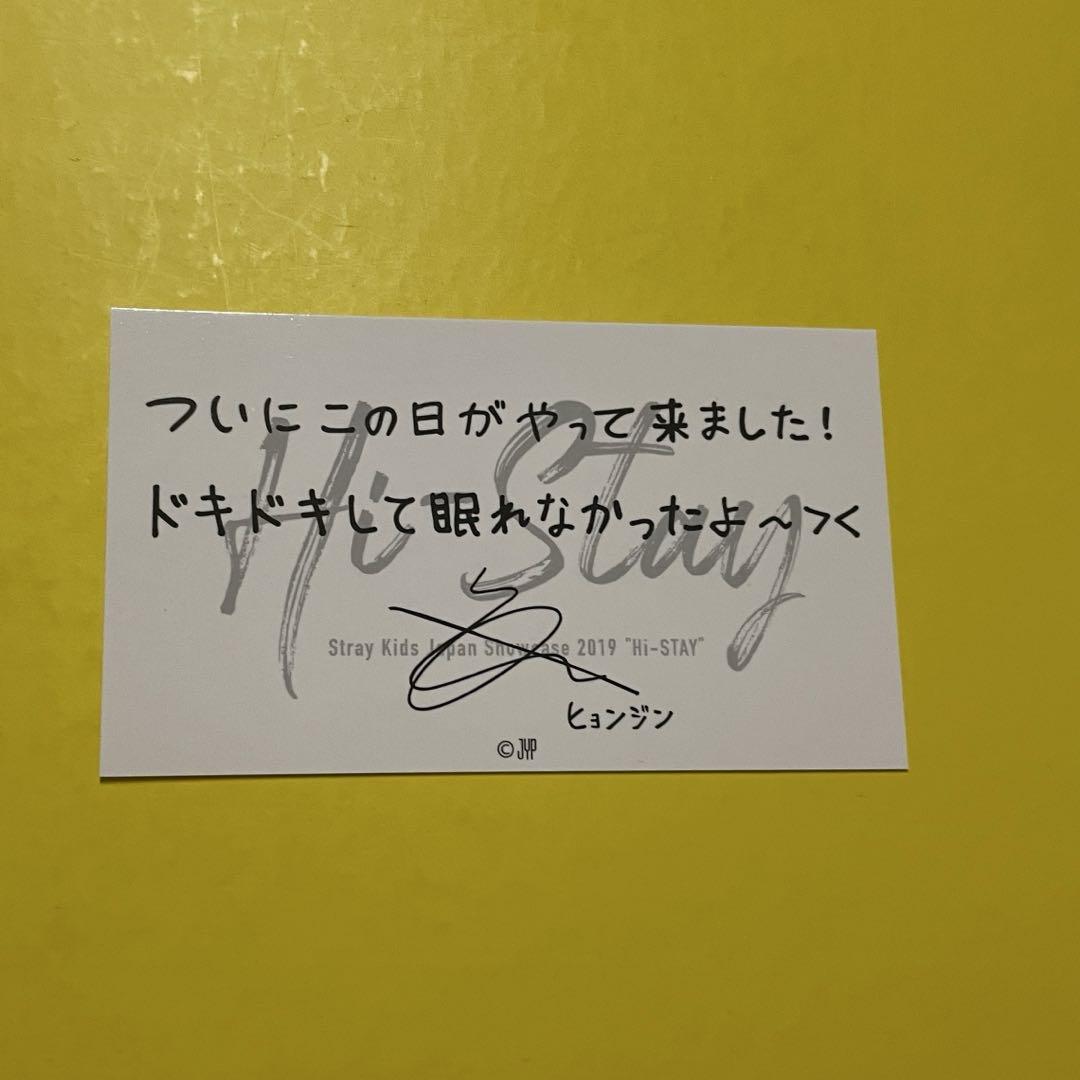 ついに この日が やって 来ました!
ドキドキして 眠れなかったよ~><
Hi-Stay
Stray Kids Japan Showcase 2019 "Hi-STAY"
ヒョンジン
©JYP